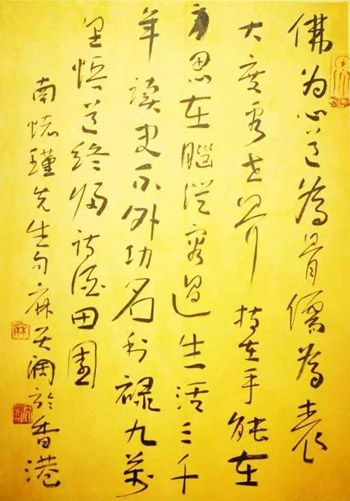 佛为心道為骨儒為表
大度看世界 技在手能在
身思在腦從容過生活三千
年读史不外功名利禄九萬
里悟道终歸诗酒田園
南懷瑾先生句麻天阔於香港